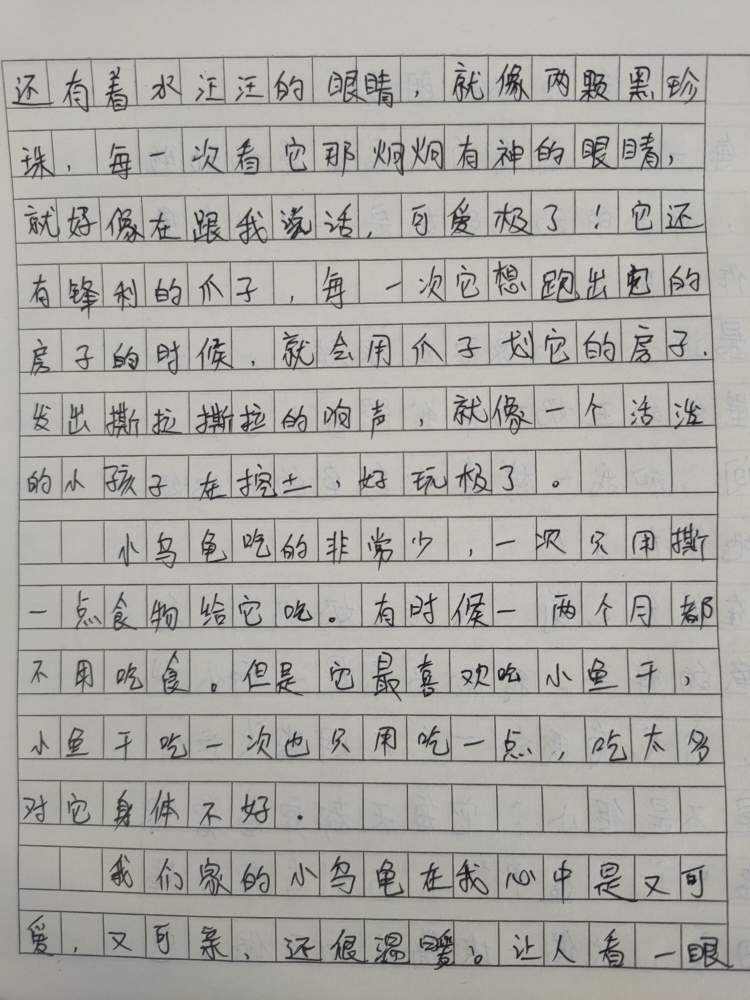 还有着水汪汪的眼睛，就像两颗黑珍
珠，每一次看它那炯炯有神的眼睛，
就好像在跟我说话，可爱极了！它还
有锋利的爪子，每一次它想跑出它的
房子的时候，就会用爪子划它的房子．
发出撕拉撕拉的响声，就像一个活泼
的小孩子在挖土，好玩极了。
小乌龟吃的非常少，一次只用撕
一点食物给它吃。有时候一两个月都
不用吃食。但是它最喜欢吃小鱼干，
小鱼干吃一次也只用吃一点，吃太多
对它身体不好．
我们家的小乌龟在我心中是又可
爱，又可亲，还很温暖。让人看一眼